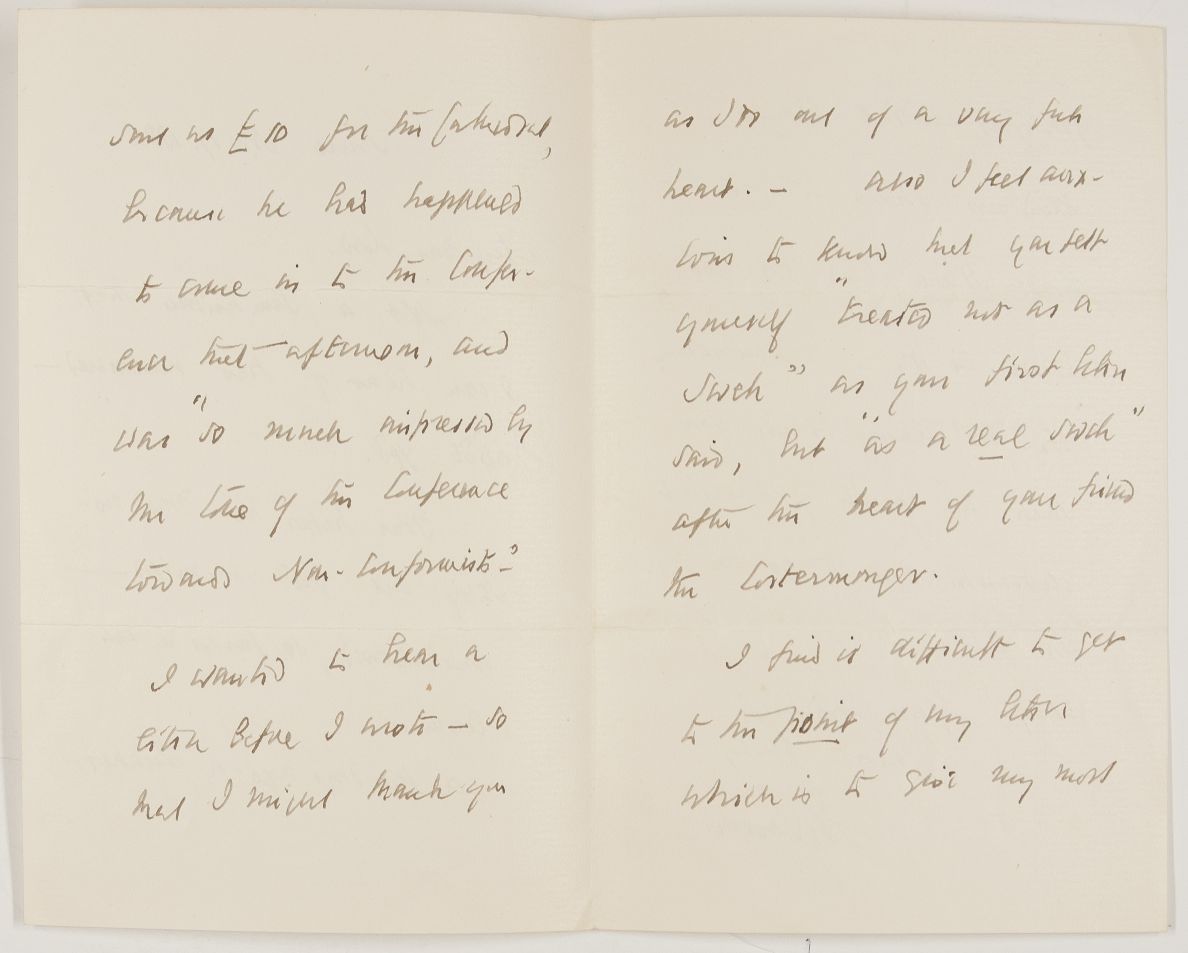 sent us £10 for the Cathedral,
because he had happened
to come in to the Confer-
ence that afternoon, and
was "so much impressed by
the tone of the Conference
towards Non-Conformists"
I wanted to hear a
little before I wrote — so
that I might thank you
as I do out of a very full
heart. — also I feel anx-
ious to know that you felt
yourself "treated not as a
Swell" as your first letter
said, but "as a real swell"
after the heart of your friend
the Costermonger.
I find it difficult to get
to the point of my letter
which is to give my most